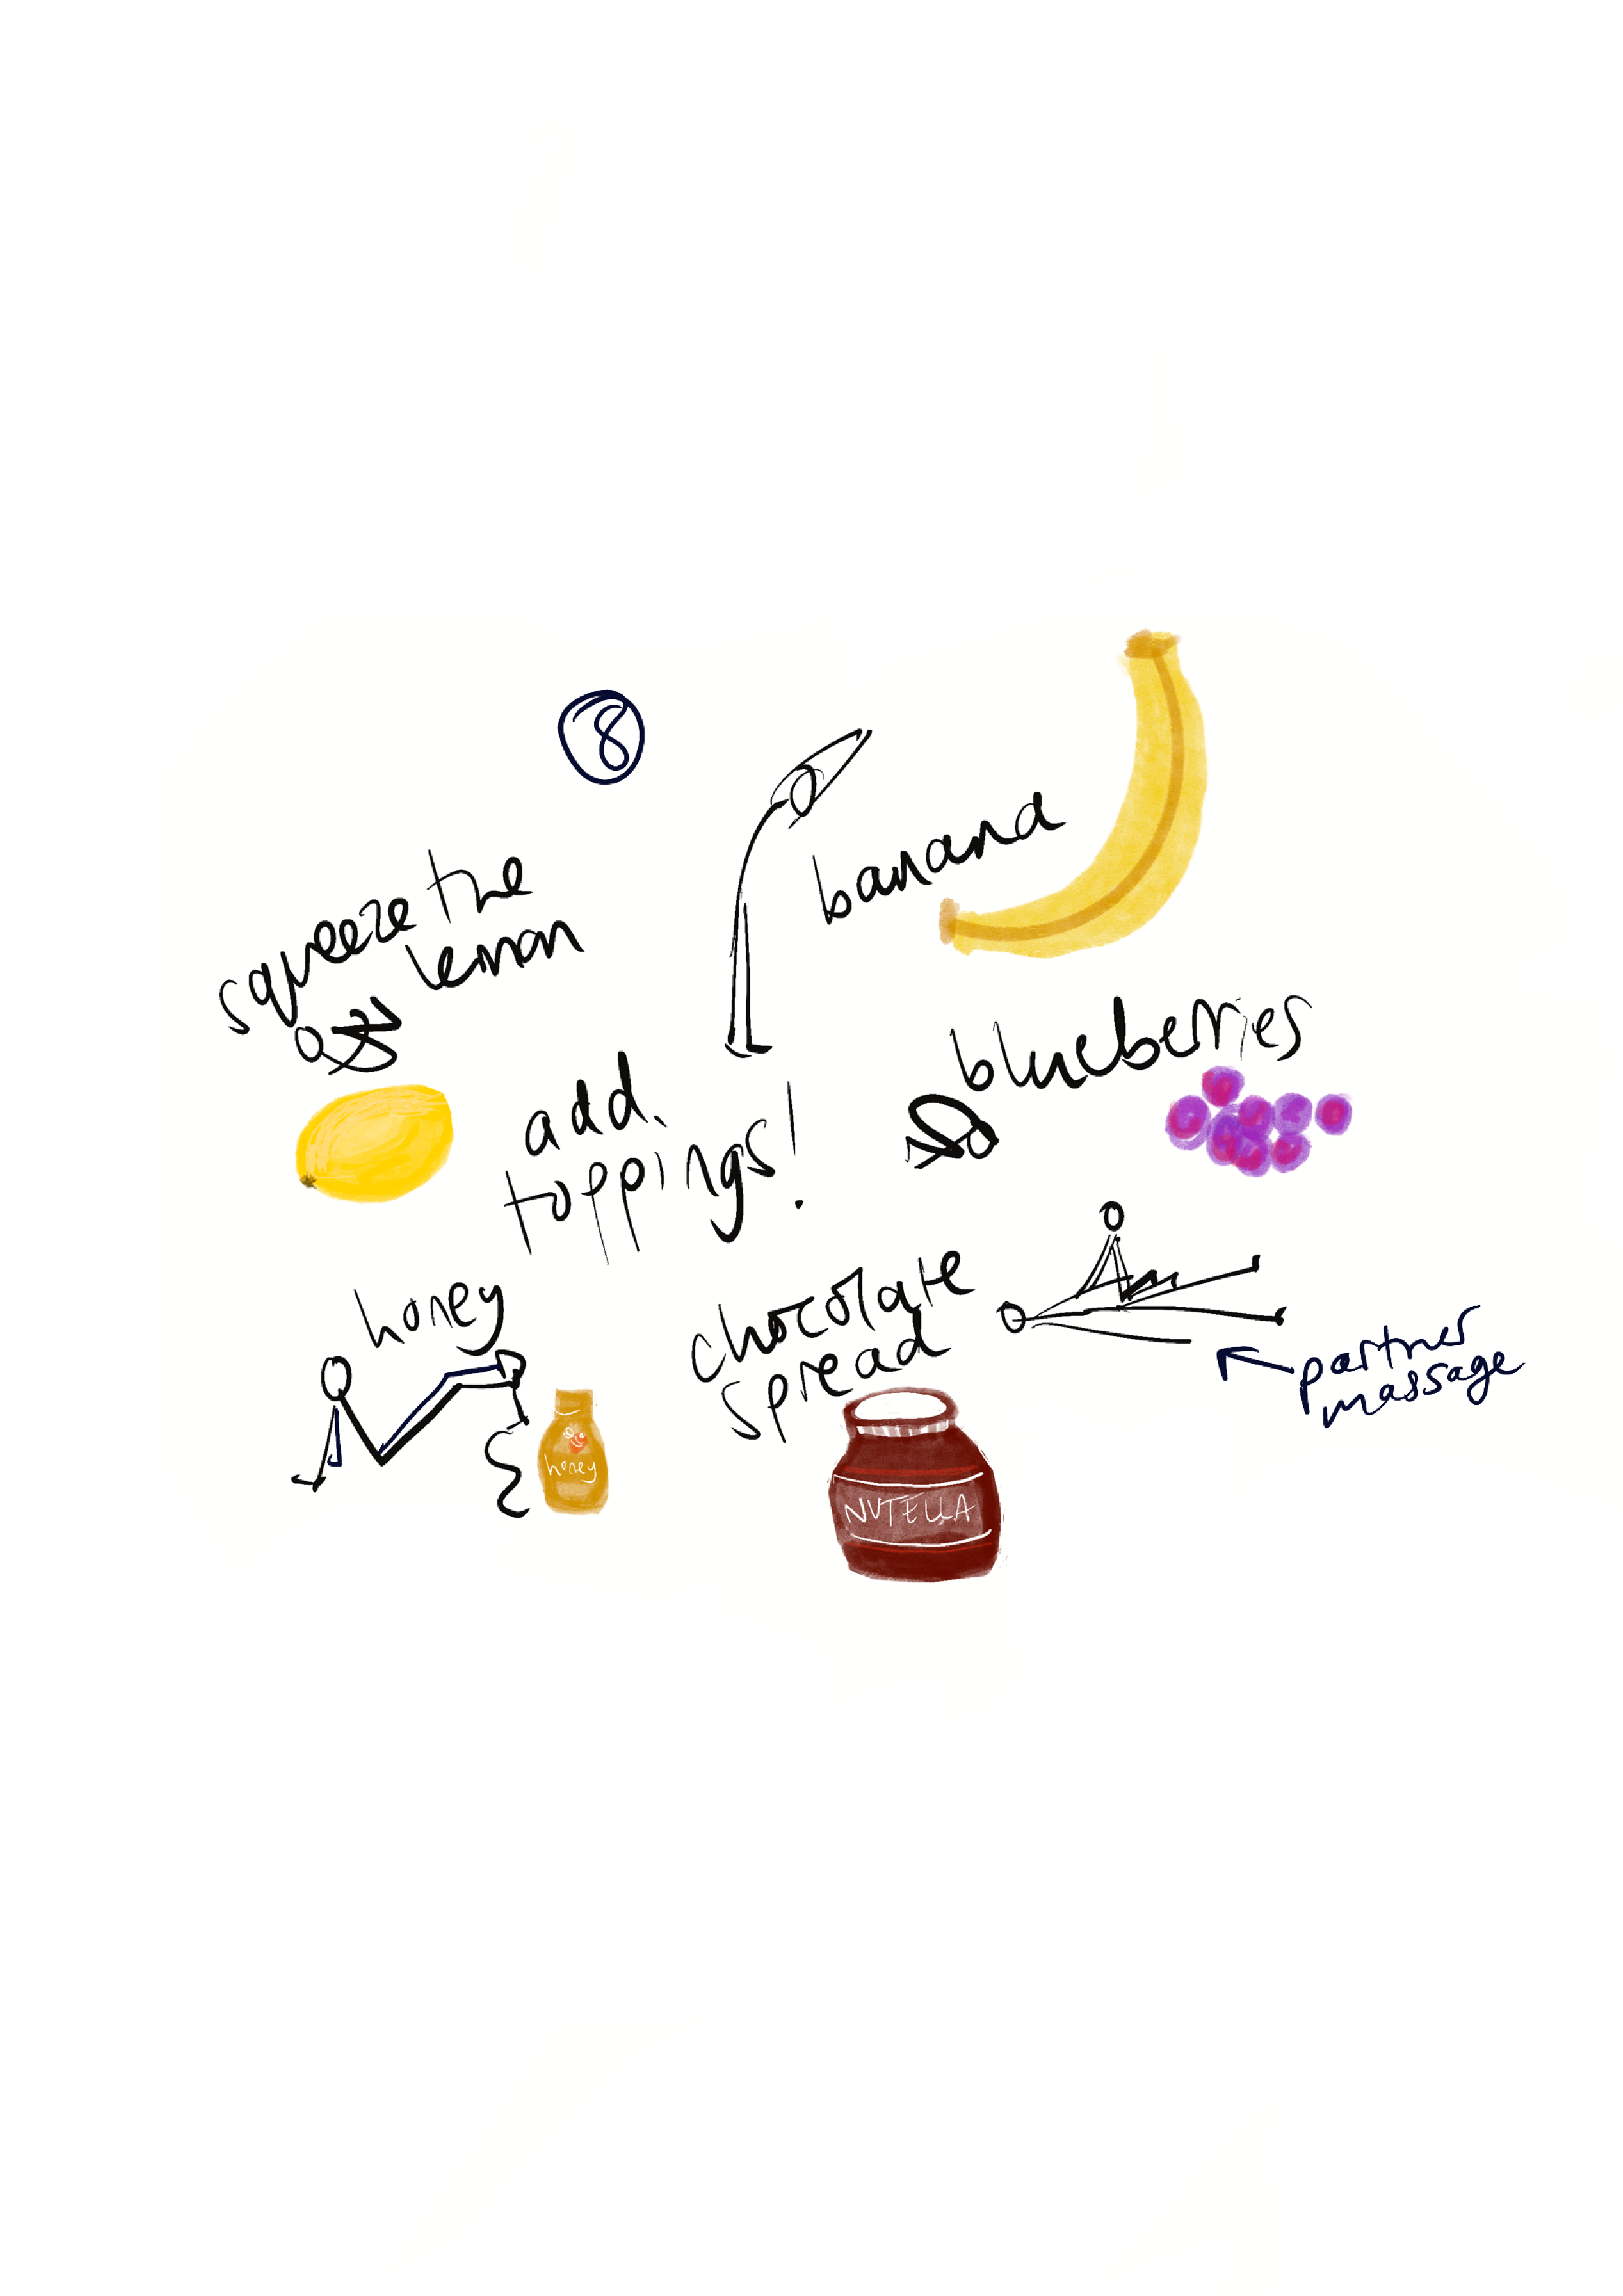 8
banana
squeeze the
lemon
blueberries
add
toppings!
honey
chocolate
spread
partner
massage
honey
NUTELLA